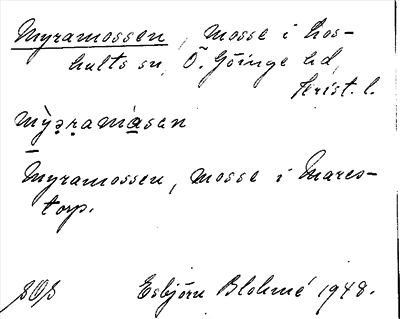 Myramossen, mosse i Hos-
hults sn, Ö. Göinge hd,
Krist. l.
mỳ̱ə̣ṛamå̀sən
Myramossen, mosse i Mares-
torp.
SOS Esbjörn Blohmé 1948.